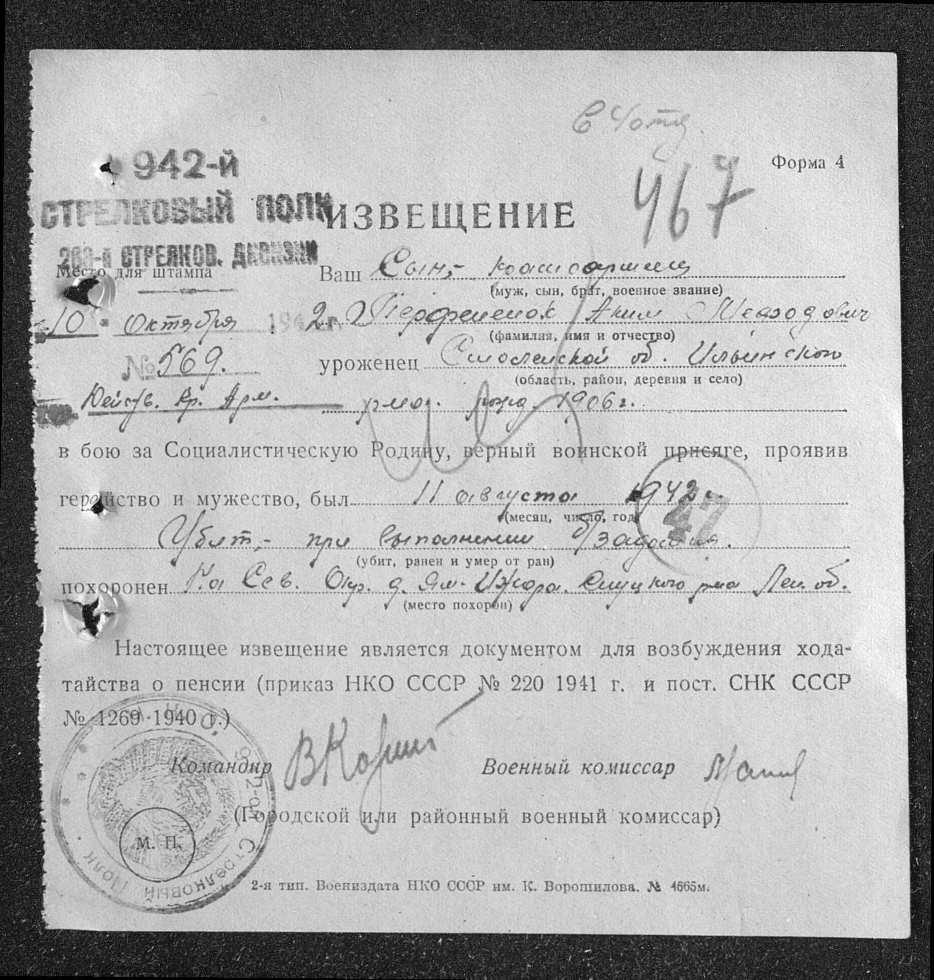 Форма 4
467
942-й
СТРЕЛКОВЫЙ ПОЛК
СТРЕЛКОВ. ДИВИЗИИ
ИЗВЕЩЕНИЕ
Место для штампа
Ваш Сын,-
(муж, сын, брат, военное звание)
10 Октября 1942 г.
Аким
(фамилия, имя и отчество)
№ 569.
уроженец Смоленской об. Ильинского
(область, район, деревня и село)
Действ. Кр. Арм.
1906 г.
в бою за Социалистическую Родину, верный воинской присяге, проявив
геройство и мужество, был 11 августа 1942 г.
(месяц, число, год)
47
Убит,- при выполнении б/задания.
(убит, ранен и умер от ран)
похоронен На Сев. Окр. д. Ям-Ижора. Слуцкого р-на Лен. об.
(место похорон)
Настоящее извещение является документом для возбуждения хода-
тайства о пенсии (приказ НКО СССР № 220 1941 г. и пост. СНК СССР
№ 1269 1940 г.)
Командир
Военный комиссар
(Городской или районный военный комиссар)
М. П.
Стрелковый Полк
2-я тип. Воениздата НКО СССР им. К. Ворошилова. № 4665м.